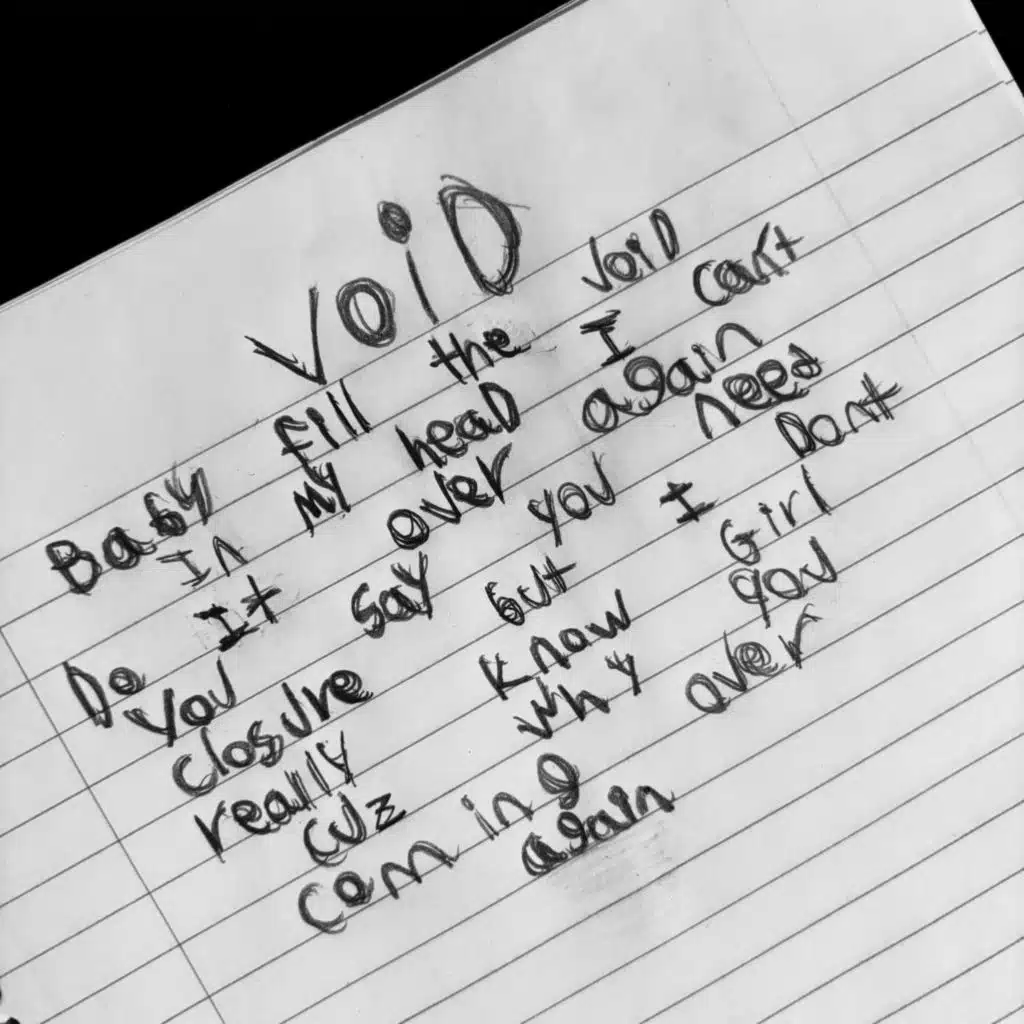 VOiD
Baby fill the VoiD
In My heaD I can't
Do It over again
You say you need
closure but I Don't
really know Girl
cuz why you
coming over
again